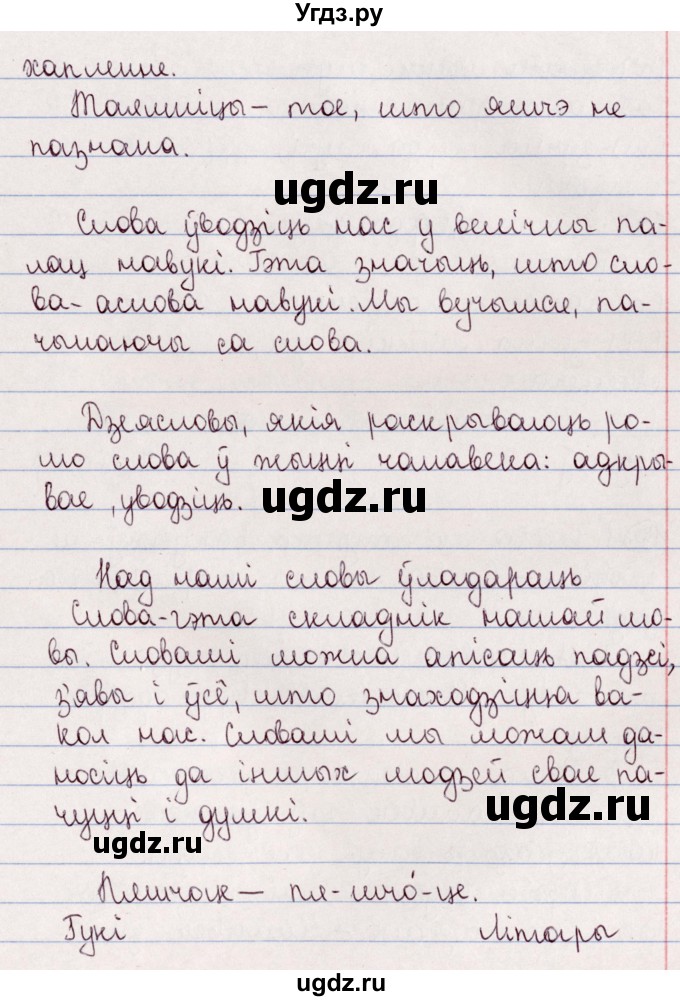 Угдз.ру
хапленне.
Таямніцы – тое, што яшчэ не
пазнана.
ugdz.ru
Слова ўводзіць нас у велічны па-
лац навукі. Гэта значыць, што сло-
ва- аснова навукі. Мы вучымся, па-
чынаючы са слова.
Дзеясловы, якія раскрываюць ро-
лю слова ў жыцці чалавека: адкры-
вае, уводзіць.
ugdz.ru
Над намі словы ўладараць
Слова-гэта складнік нашай мо-
вы. Словамі можна апісаць падзеі,
з'явы і ўсё, што знаходзіцца ва-
кол нас. Словамі мы можам да-
носіць да іншых людзей свае па-
ugdz.ru
чуцці і думкі.
ugdz.ru
Пляшчоце – пля-шчо́-це.
Гукі Літары
ugdz.ru